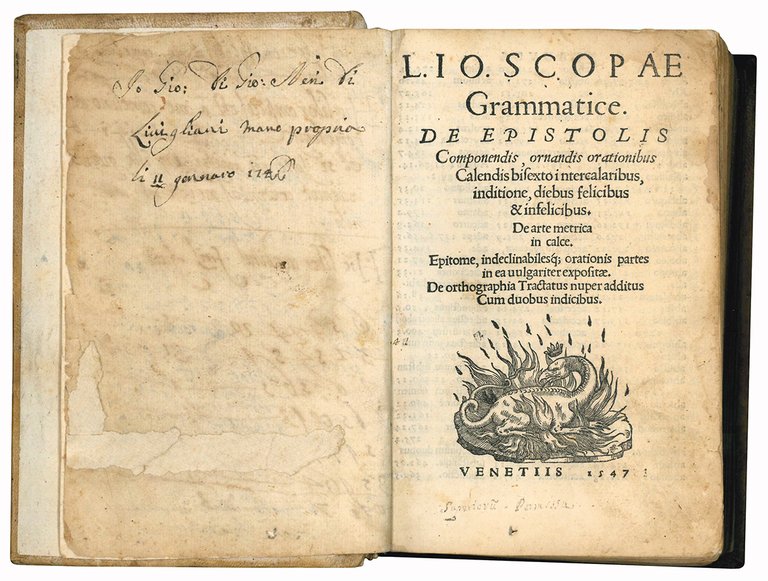 Io Gio: di Gio: Neri di
Livigliani mano propria
li 11 gennaro
L. IO. SCOPAE
Grammatice.
DE EPISTOLIS
Componendis, ornandis orationibus
Calendis biſexto intercalaribus,
inditione, diebus felicibus
& infelicibus.
De arte metrica
in calce.
Epitome, indeclinabilesq; orationis partes
in ea uulgariter expoſitæ.
De orthographia Tractatus nuper additus
Cum duobus indicibus.
VENETIIS 1547